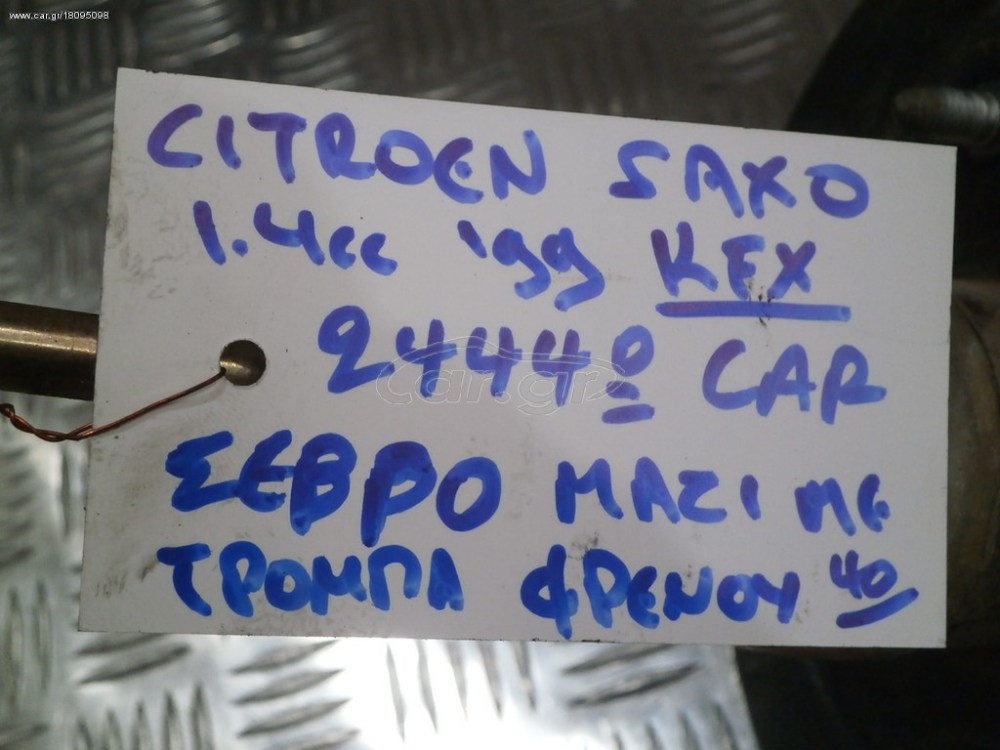 www.car.gr/18095098
CITROEN SAXO
1.4cc '99 KFX
2444º CAR
car.gr
ΣΕΒΡΟ ΜΑΖΙ ΜΕ
ΤΡΟΜΠΑ ΦΡΕΝΟΥ 40